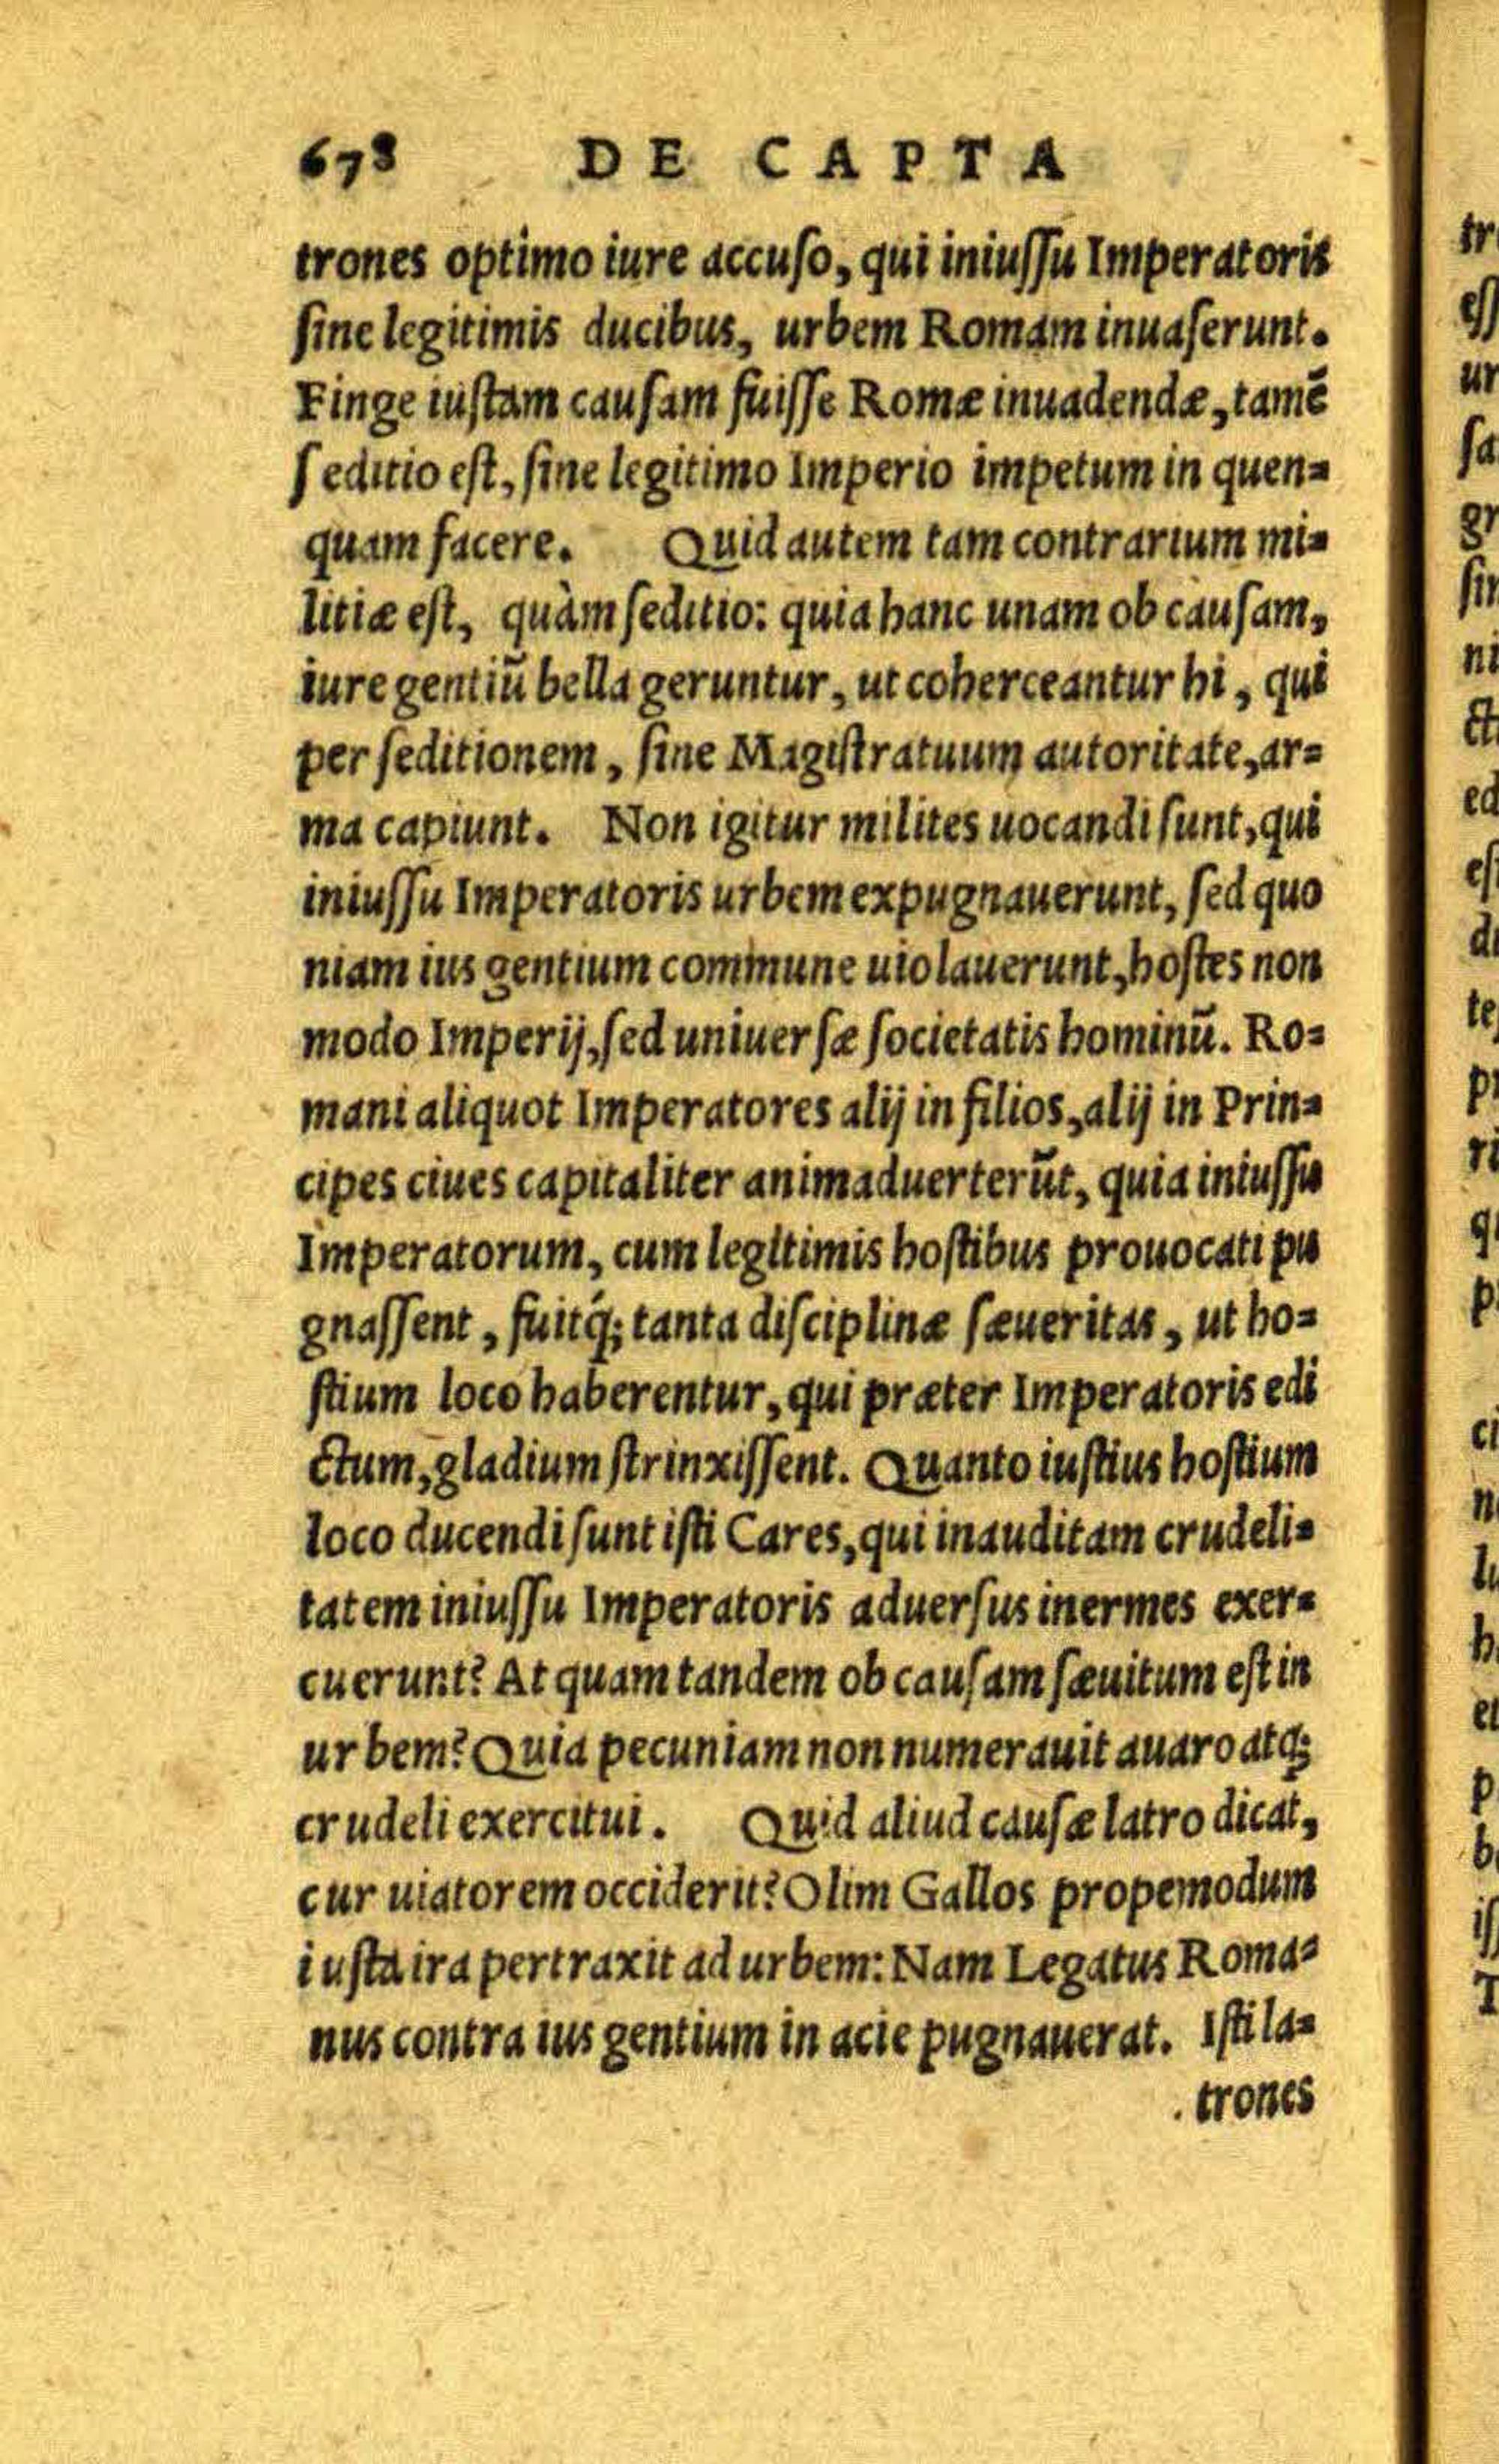 678 DE CAPTA
trones optimo iure accuſo, qui iniuſſu Imperatoris
ſine legitimis ducibus, urbem Romam inuaſerunt.
Finge iuſtam cauſam fuiſſe Romæ inuadendæ, tamẽ
ſeditio eſt, ſine legitimo Imperio impetum in quen-
quam facere. Quid autem tam contrarium mi-
litiæ eſt, quàm ſeditio: quia hanc unam ob cauſam,
iure gentiũ bella geruntur, ut coherceantur hi, qui
per ſeditionem, ſine Magiſtratuum autoritate, ar-
ma capiunt. Non igitur milites uocandi ſunt, qui
iniuſſu Imperatoris urbem expugnauerunt, ſed quo
niam ius gentium commune uiolauerunt, hoſtes non
modo Imperij, ſed uniuerſæ ſocietatis hominũ. Ro-
mani aliquot Imperatores alij in filios, alij in Prin-
cipes ciues capitaliter animaduerterũt, quia iniuſſu
Imperatorum, cum legitimis hoſtibus prouocati pu
gnaſſent, fuitq́; tanta diſciplinæ ſæueritas, ut ho-
ſtium loco haberentur, qui præter Imperatoris edi
ctum, gladium ſtrinxiſſent. Quanto iuſtius hoſtium
loco ducendi ſunt iſti Cares, qui inauditam crudeli-
tatem iniuſſu Imperatoris aduerſus inermes exer-
cuerunt? At quam tandem ob cauſam ſæuitum eſt in
urbem? Quia pecuniam non numerauit auaro atq;
crudeli exercitui. Quid aliud cauſæ latro dicat,
cur uiatorem occiderit? Olim Gallos propemodum
iuſta ira pertraxit ad urbem: Nam Legatus Roma-
nus contra ius gentium in acie pugnauerat. Iſti la-
trones